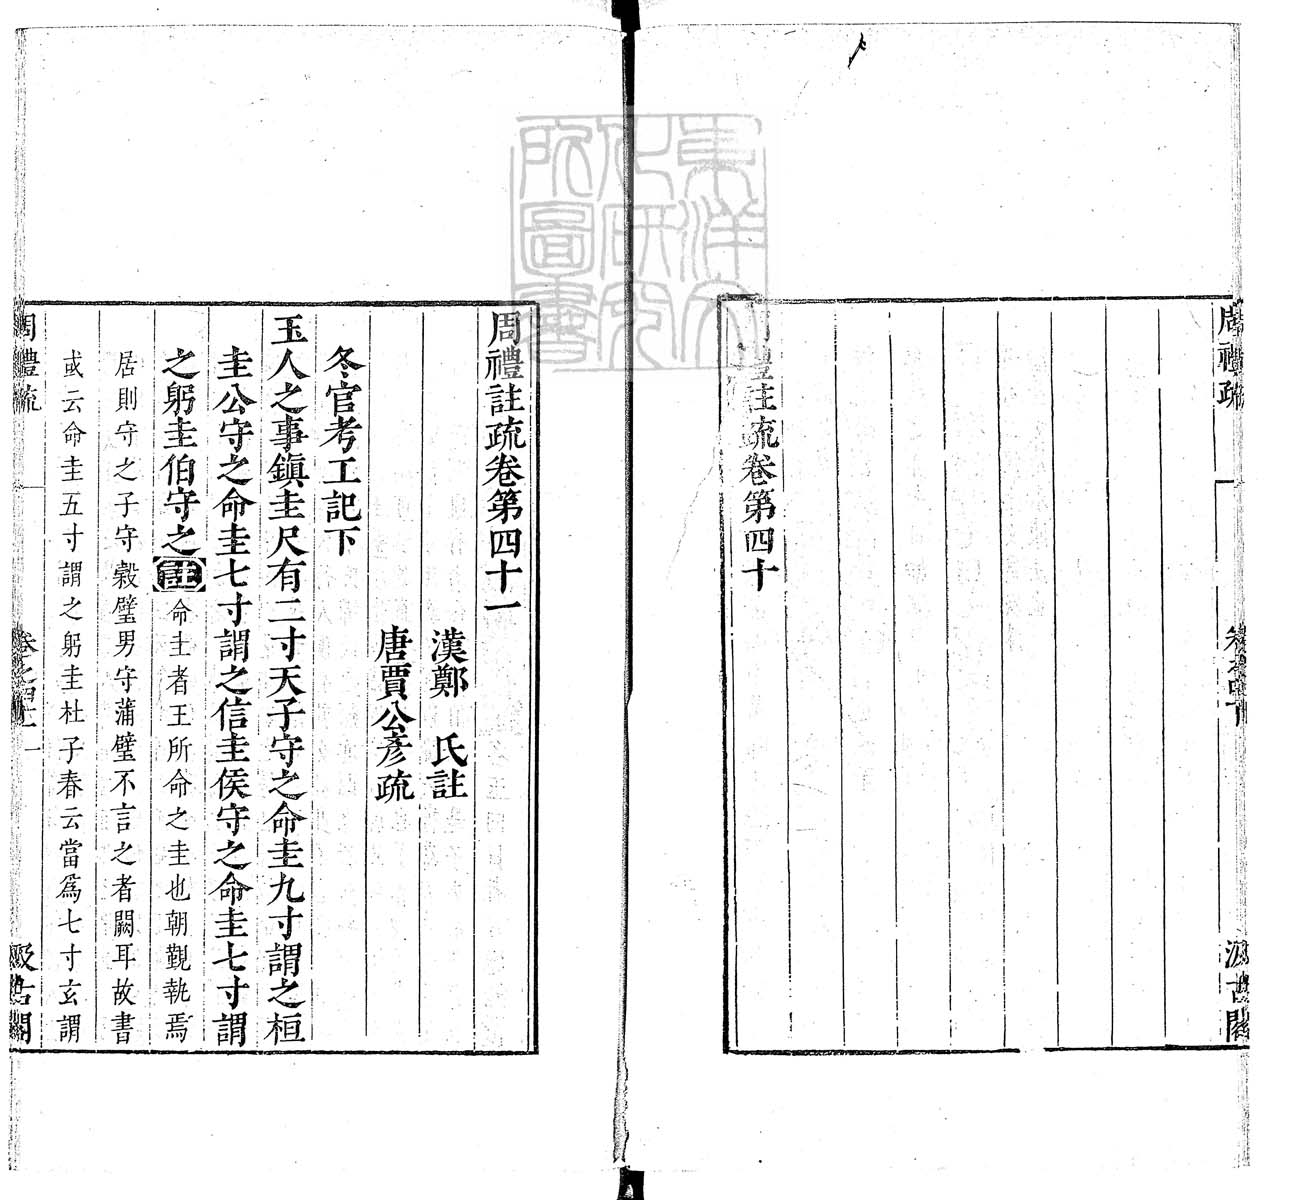 周禮疏
汲古閣
周禮註疏卷第四十
周禮註疏卷第四十一
漢鄭　氏註
唐賈公彥疏
冬官考工記下
玉人之事鎮圭尺有二寸天子守之命圭九寸謂之桓
圭公守之命圭七寸謂之信圭侯守之命圭七寸謂
之躬圭伯守之註命圭者王所命之圭也朝覲執焉
居則守之子守榖璧男守蒲璧不言之者闕耳故書
或云命圭五寸謂之躬圭杜子春云當爲七寸玄謂
周禮疏
汲古閣
東洋文化研究所圖書